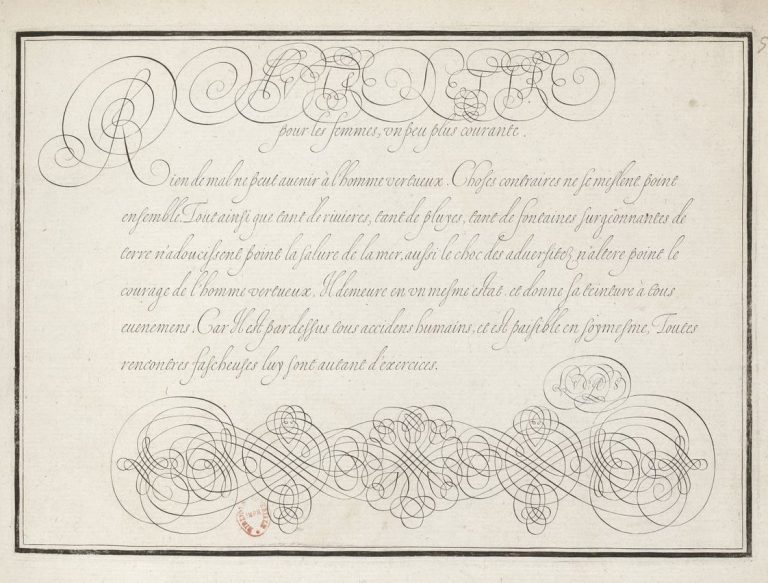 pour les femmes, vn peu plus courante.
Rien de mal ne peut auenir à l'homme vertueux. Choses contraires ne se meslent point
ensemble. Tout ainsi que tant de riuieres, tant de pluyes, tant de fontaines surgionnantes de
terre n'adoucissent point la salure de la mer, aussi le choc des aduersitez n'altere point le
courage de l'homme vertueux. Il demeure en vn mesme estat, et donne sa teinture à tous
euenemens. Car Il est par dessus tous accidens humains, et est paisible en soy mesme, Toutes
rencontres fascheuses luy sont autant d'exercices.